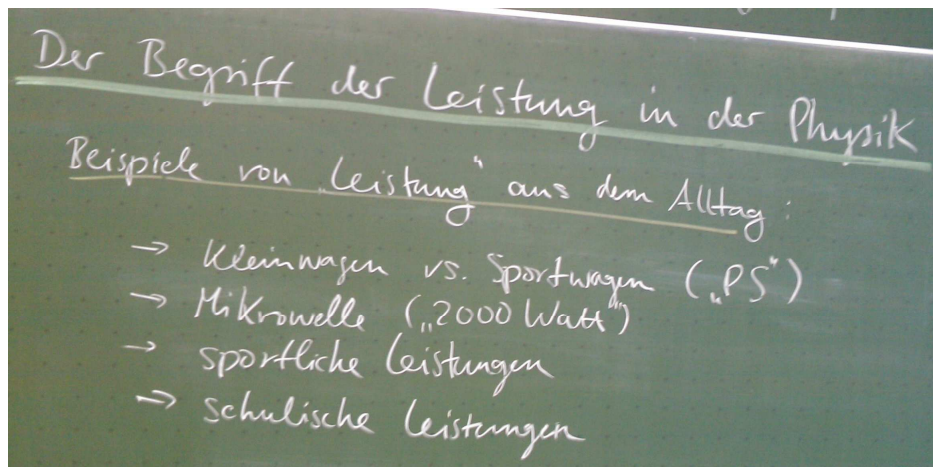 Der Begriff der Leistung in der Physik
Beispiele von „Leistung“ aus dem Alltag:
→ Kleinwagen vs. Sportwagen („PS“)
→ Mikrowelle („2000 Watt“)
→ sportliche Leistungen
→ schulische Leistungen